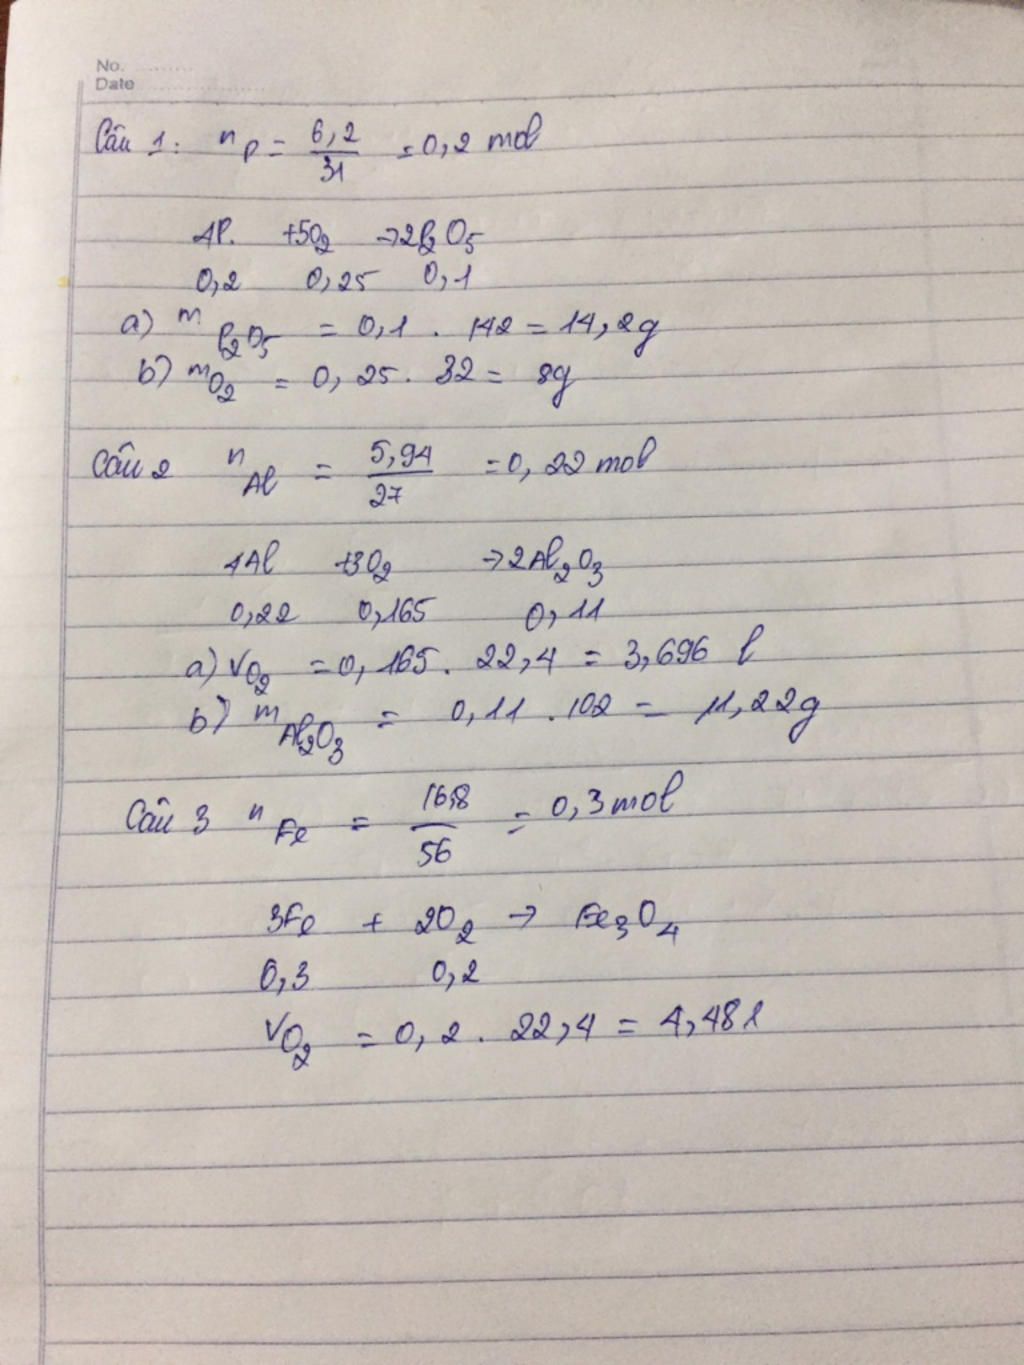 No. ............
Date ....................
Câu 1: nP = 6,2/31 = 0,2 mol
4P. +5O2 →2P2O5
0,2 0,25 0,1
a) mP2O5 = 0,1 . 142 = 14,2g
b) mO2 = 0,25. 32 = 8g
Câu 2 nAl = 5,94/27 = 0,22 mol
4Al +3O2 →2Al2O3
0,22 0,165 0,11
a) VO2 = 0,165. 22,4 = 3,696 l
b) mAl2O3 = 0,11 .102 = 11,22g
Câu 3 nFe = 16,8/56 = 0,3 mol
3Fe + 2O2 → Fe3O4
0,3 0,2
VO2 = 0,2 . 22,4 = 4,48 l